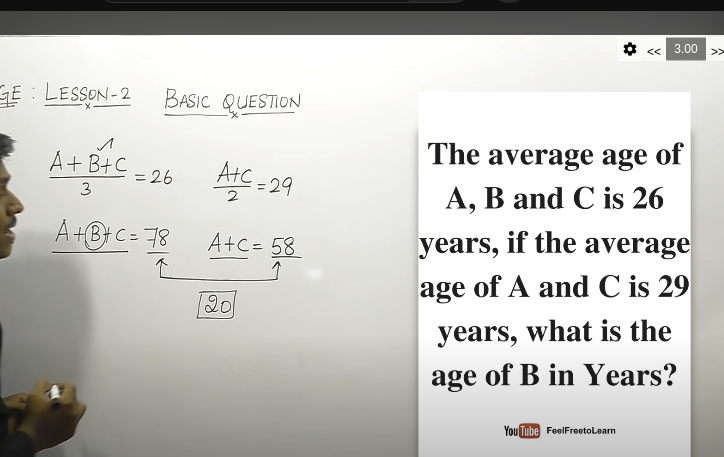 << 3.00 >>
GE : LESSON-2 BASIC QUESTION
A+B+C/3 = 26
A+C/2 = 29
A+B+C = 78
A+C = 58
20
The average age of
A, B and C is 26
years, if the average
age of A and C is 29
years, what is the
age of B in Years?
YouTube FeelFreetoLearn